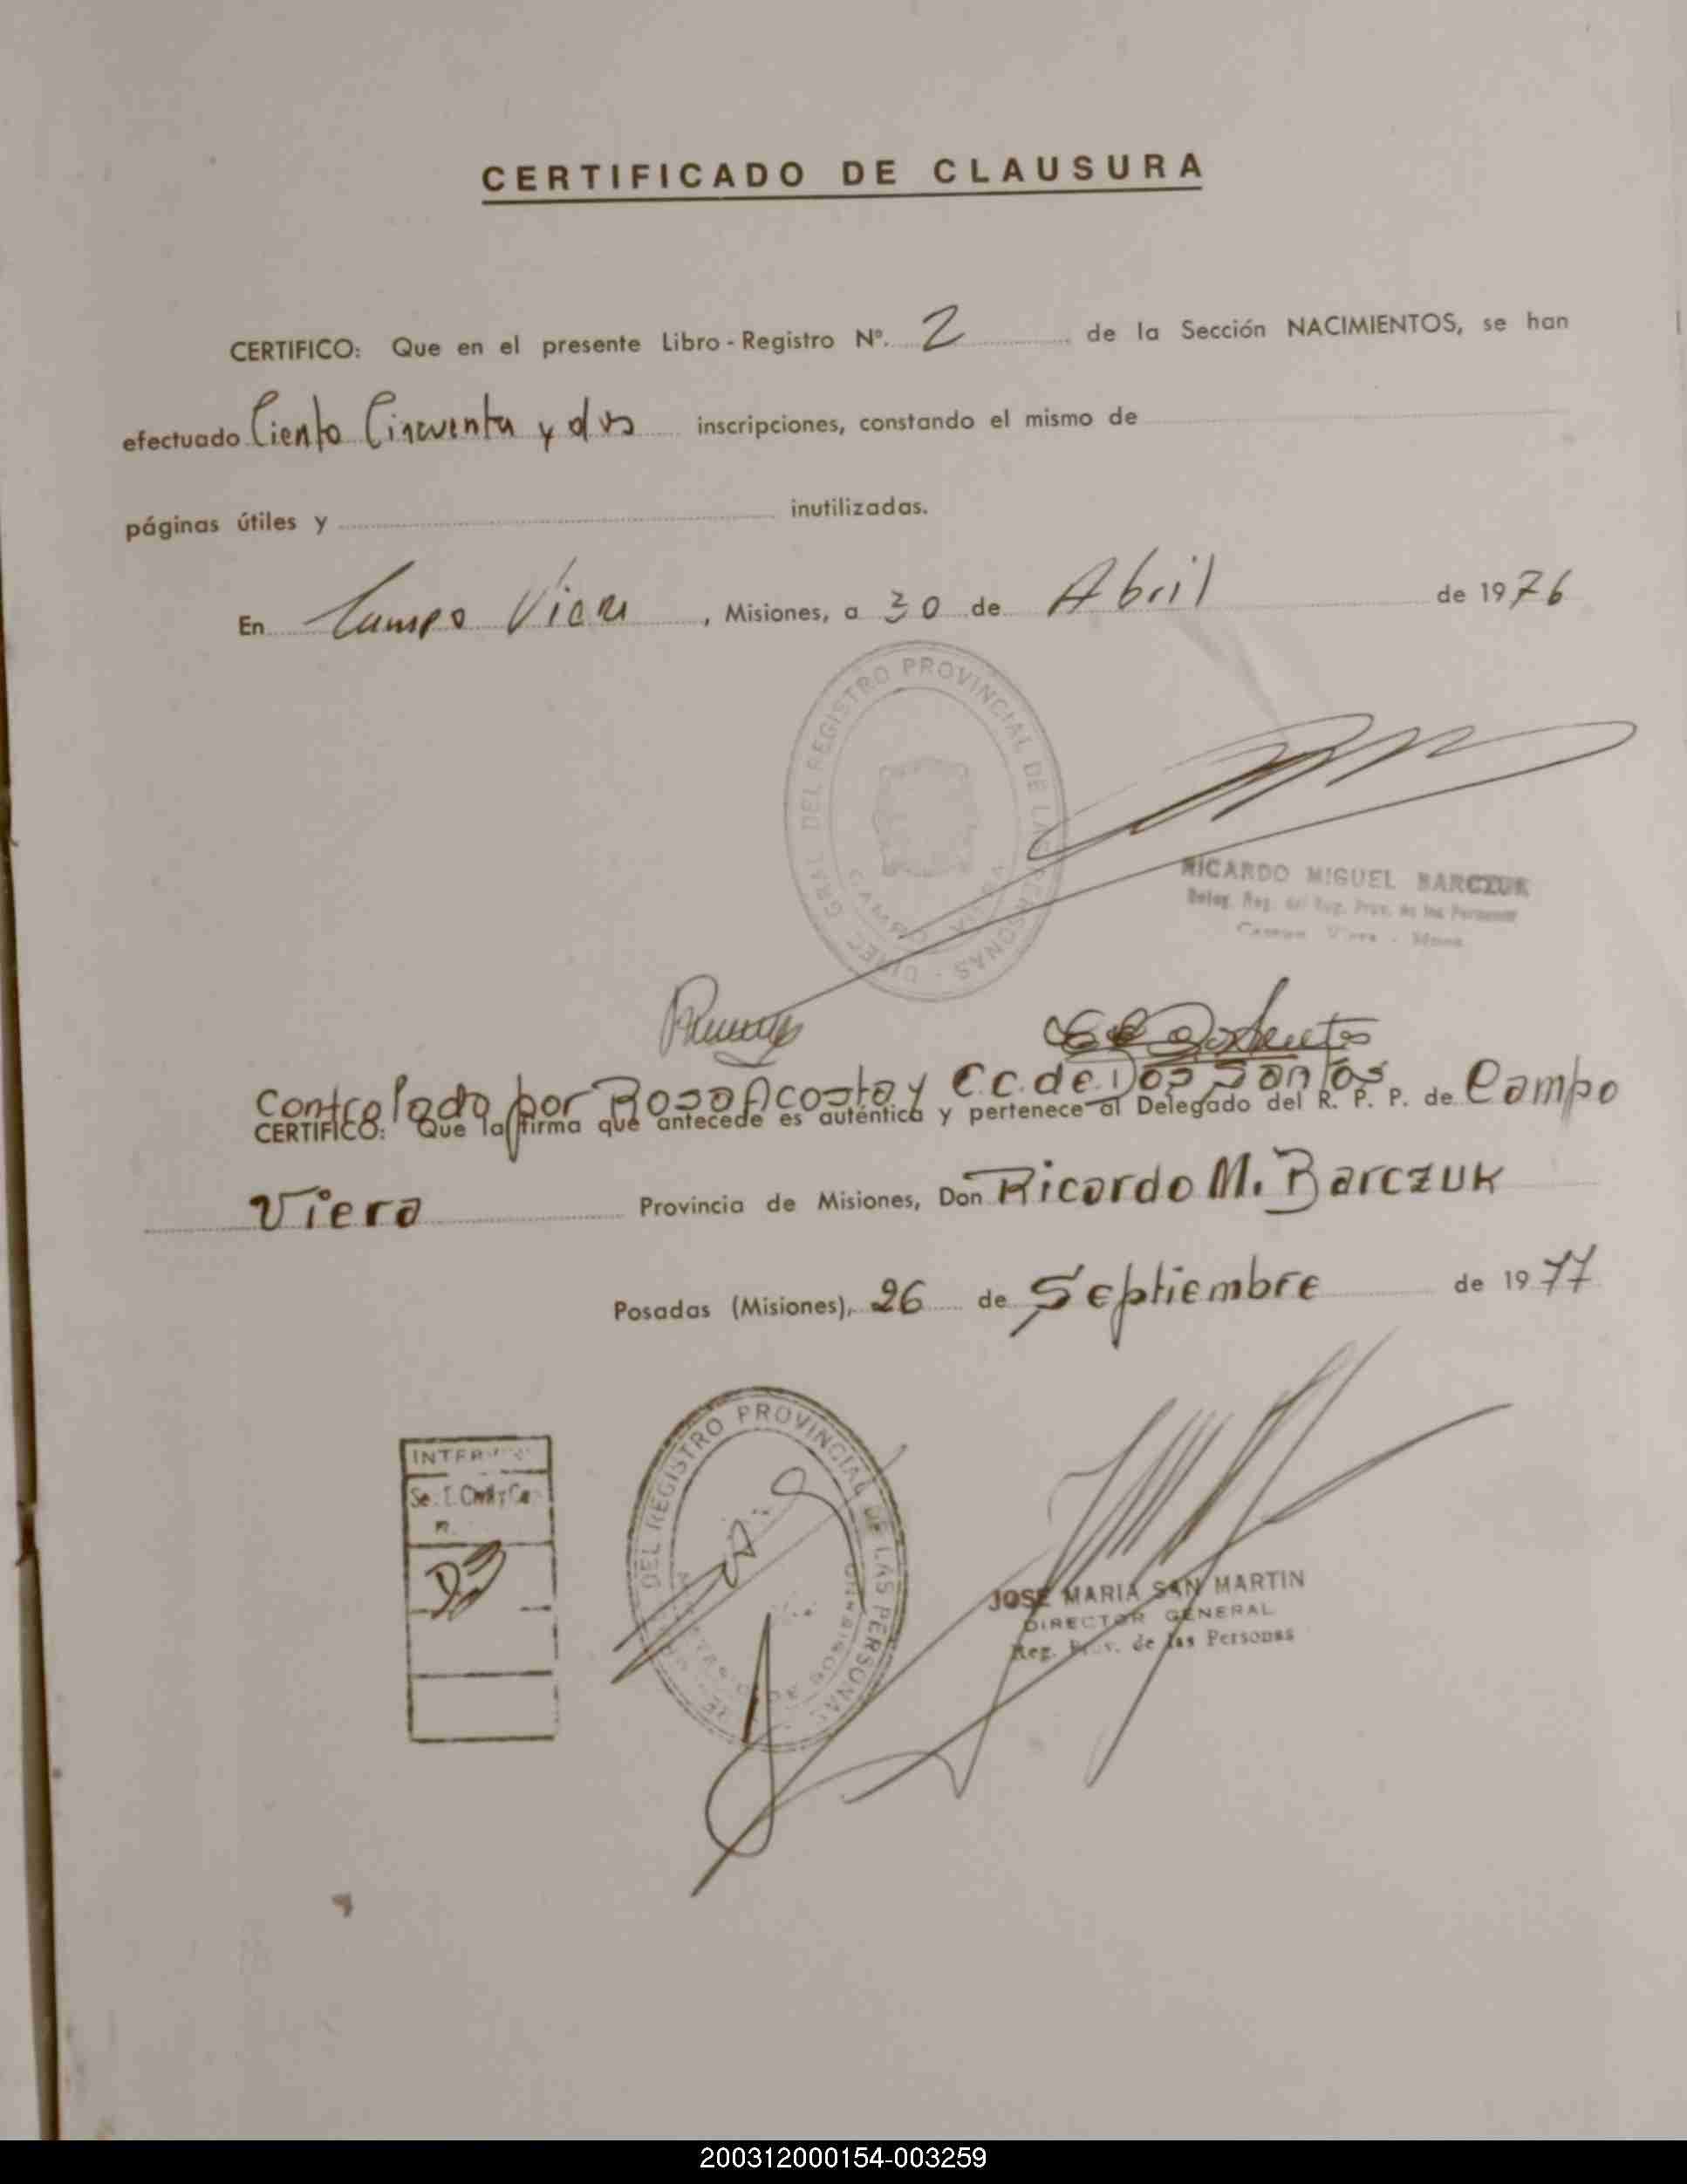 CERTIFICADO DE CLAUSURA
CERTIFICO: Que en el presente Libro-Registro Nº. 2 de la Sección NACIMIENTOS, se han
efectuado Ciento Cincuenta y dos inscripciones, constando el mismo de
páginas útiles y inutilizadas.
En Campo Viera, Misiones, a 30 de Abril de 1976
GRAL DEL REGISTRO PROVINCIAL DE LAS PERSONAS
CAMPO VIERA
RICARDO MIGUEL BARCZUK
Deleg. Reg. del Reg. Prov. de las Personas
Campo Viera - Mnes.
Controlado por Rosa Acosta y C.C. de Dos Santos
CERTIFICO: Que la firma que antecede es auténtica y pertenece al Delegado del R. P. P. de Campo
Viera Provincia de Misiones, Don Ricardo M. Barczuk
Posadas (Misiones), 26 de Septiembre de 1977
DEL REGISTRO PROVINCIAL DE LAS PERSONAS
JOSE MARIA SAN MARTIN
DIRECTOR GENERAL
Reg. Prov. de las Personas
200312000154-003259